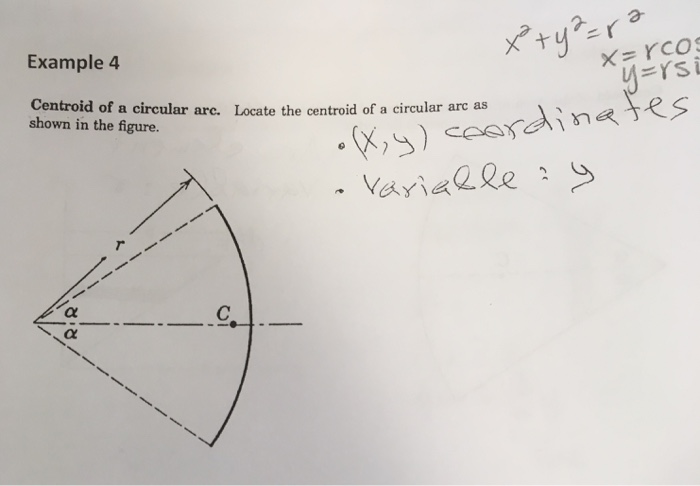 x²+y²=r²
x=rcos
y=rsi
Example 4
Centroid of a circular arc. Locate the centroid of a circular arc as
shown in the figure.
• (x,y) coordinates
• Variable : y
r
α
α
C